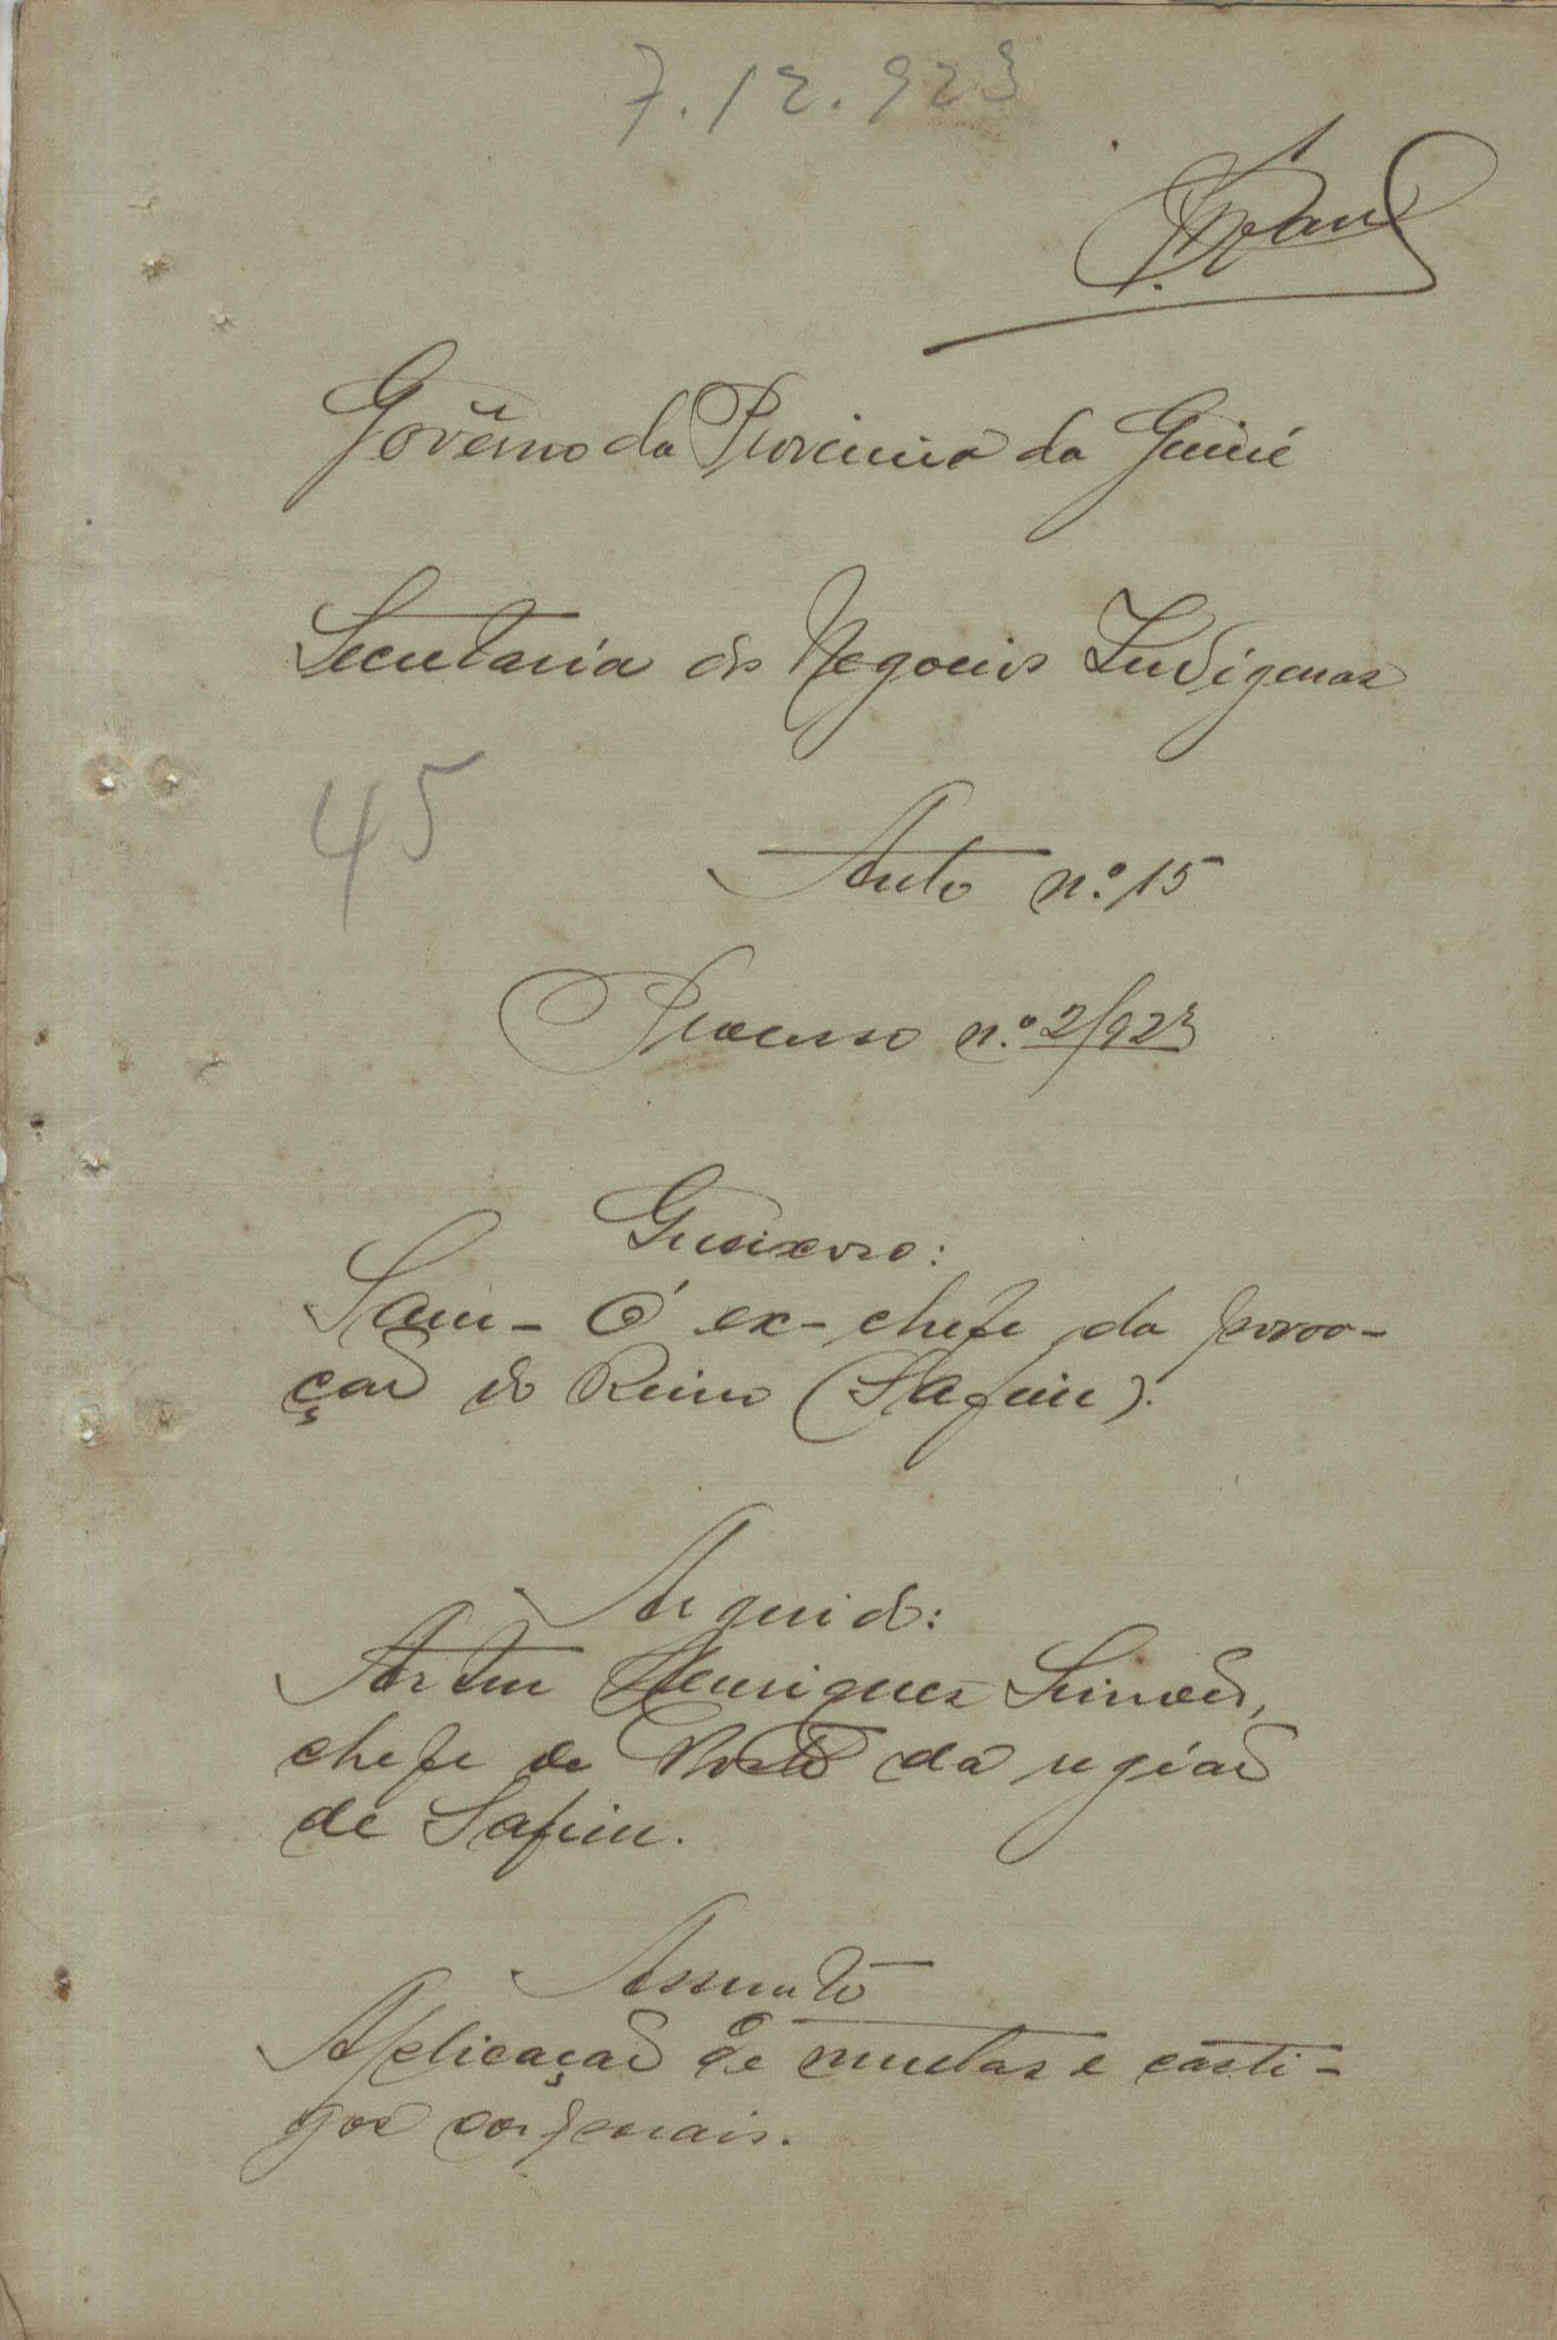 7.12.923
Govêrno da Provincia da Guiné
Secretaria dos Negocios Indigenas
45
Auto n.º 15
Processo n.º 2/923
Queixoso:
Sam-Ó ex-chefe da povoa-
ção do Reino (Safim).
Arguido:
Artur Henriques Simões,
chefe de Posto da região
de Safim.
Assunto
Aplicação de multas e casti-
gos corporais.